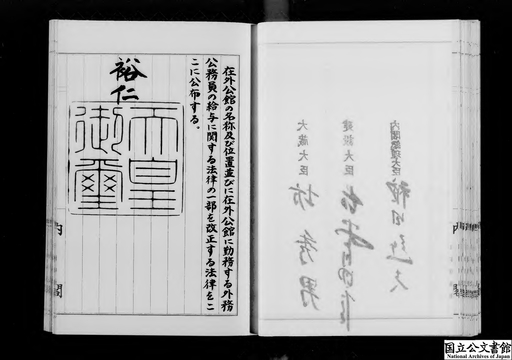 在外公館の名称及び位置並びに在外公館に勤務する外務
公務員の給与に関する法律の一部を改正する法律をこ
こに公布する。
裕仁
天皇
御璽
内閣
内閣総理大臣
建設大臣
大蔵大臣
国立公文書館
National Archives of Japan